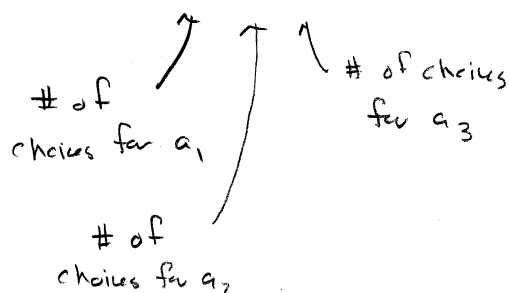 # of
choices for a₁
# of choices
for a₃
# of
choices for a₂